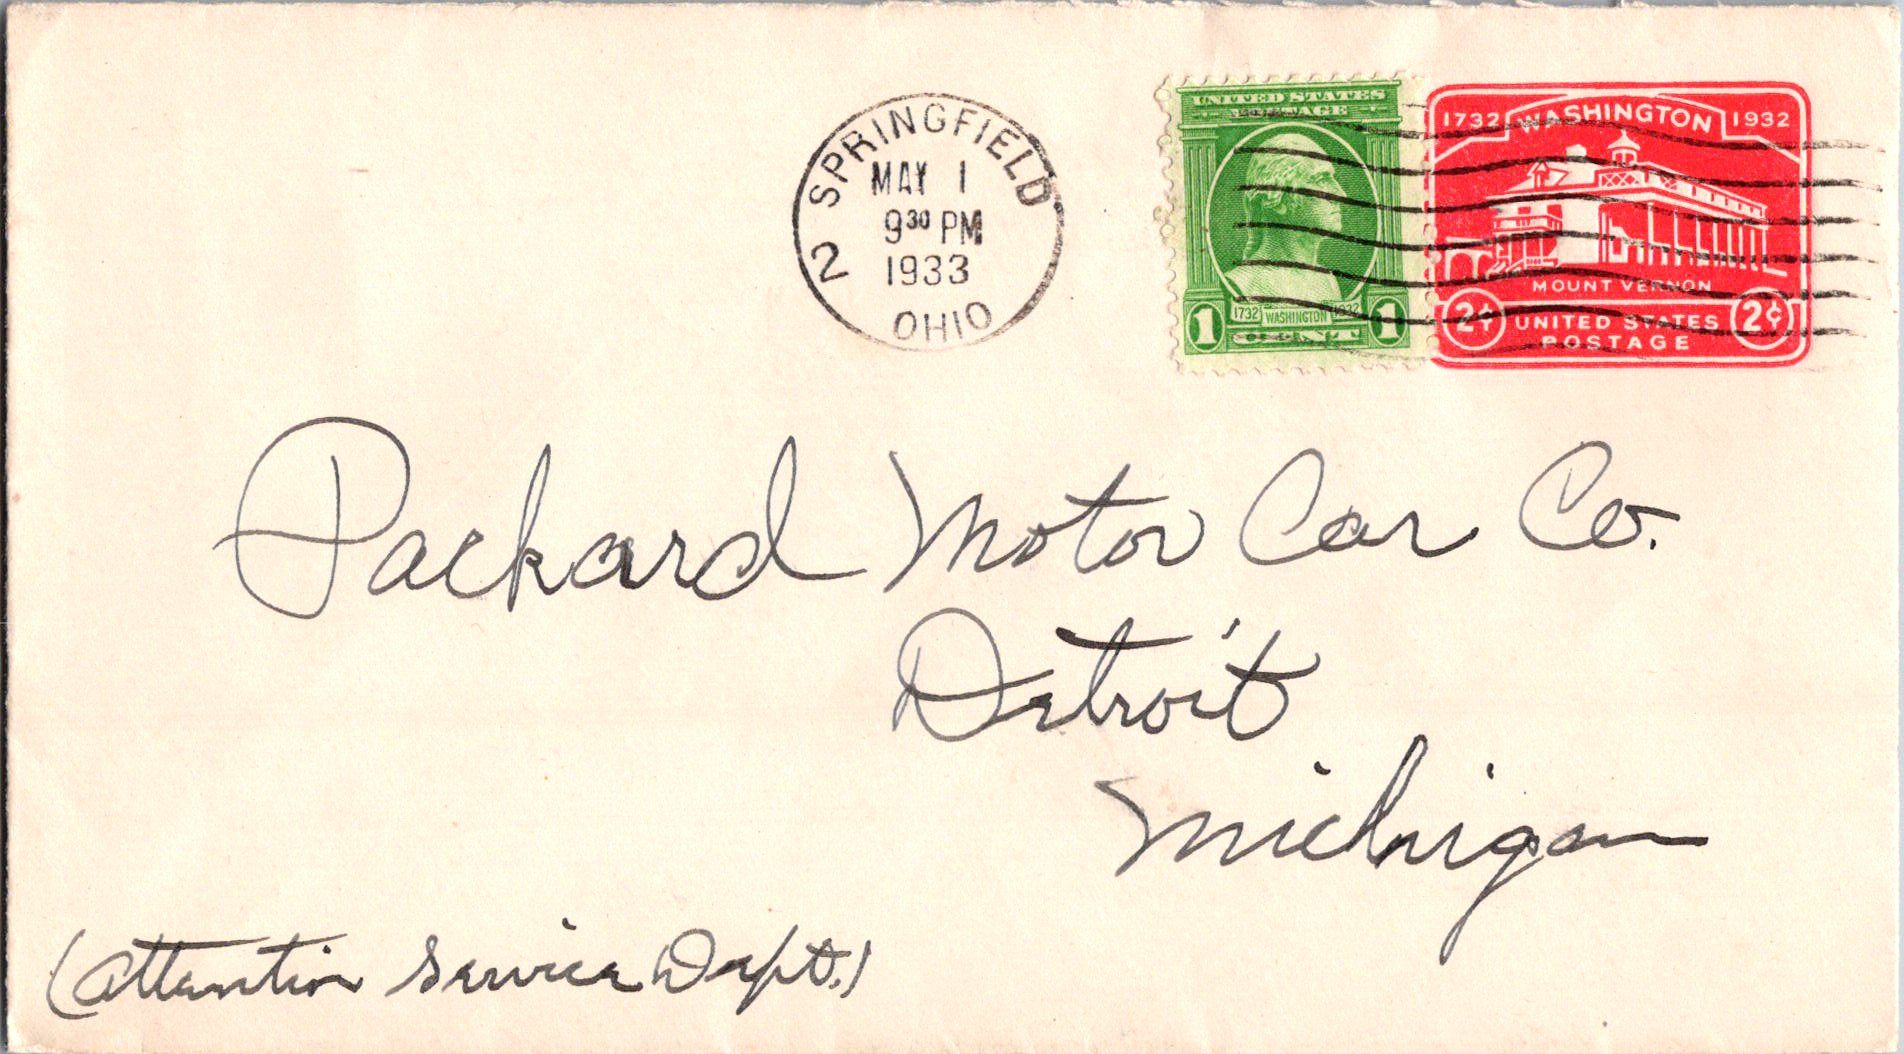 SPRINGFIELD
MAY 1
9 30 PM
1933
2
OHIO
UNITED STATES
POSTAGE
1732 WASHINGTON 1932
1 CENT 1
1732 WASHINGTON 1932
MOUNT VERNON
2¢ UNITED STATES 2¢
POSTAGE
Packard Motor Car Co.
Detroit
Michigan
(Attention Service Dept.)